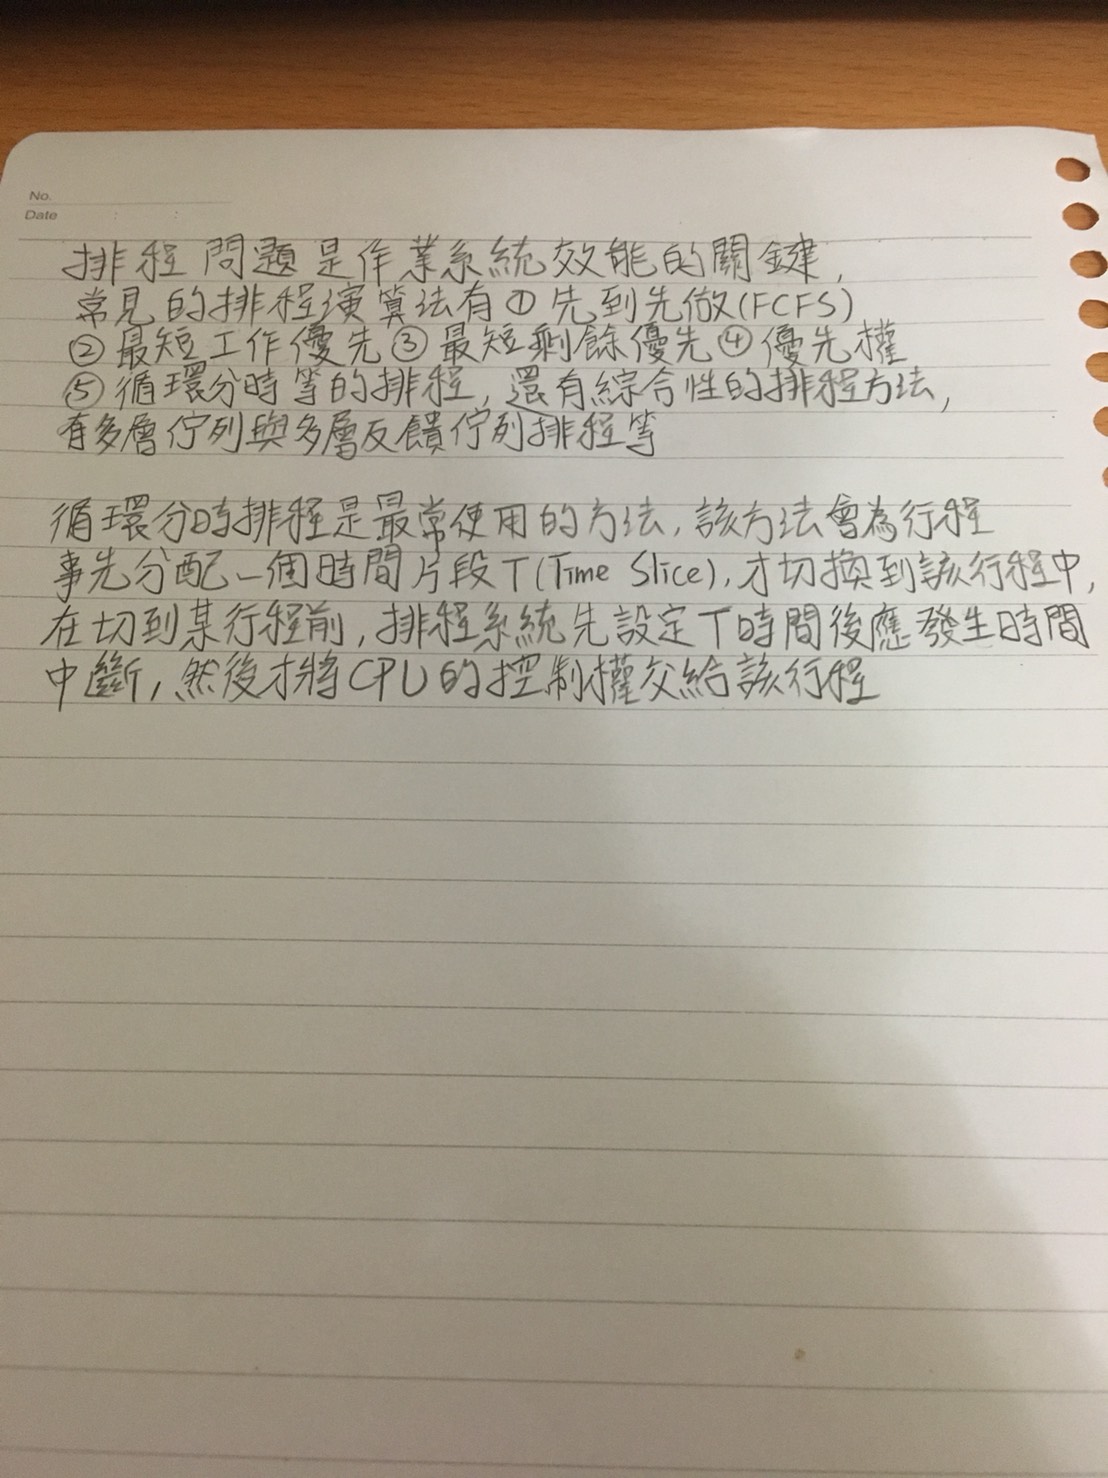 No.
Date : :
排程問題是作業系統效能的關鍵,
常見的排程演算法有①先到先做(FCFS)
②最短工作優先③最短剩餘優先④優先權
⑤循環分時等的排程, 還有綜合性的排程方法,
有多層佇列與多層反饋佇列排程等
循環分時排程是最常使用的方法, 該方法會為行程
事先分配一個時間片段T(Time Slice), 才切換到該行程中,
在切到某行程前, 排程系統先設定T時間後應發生時間
中斷, 然後才將CPU的控制權交給該行程